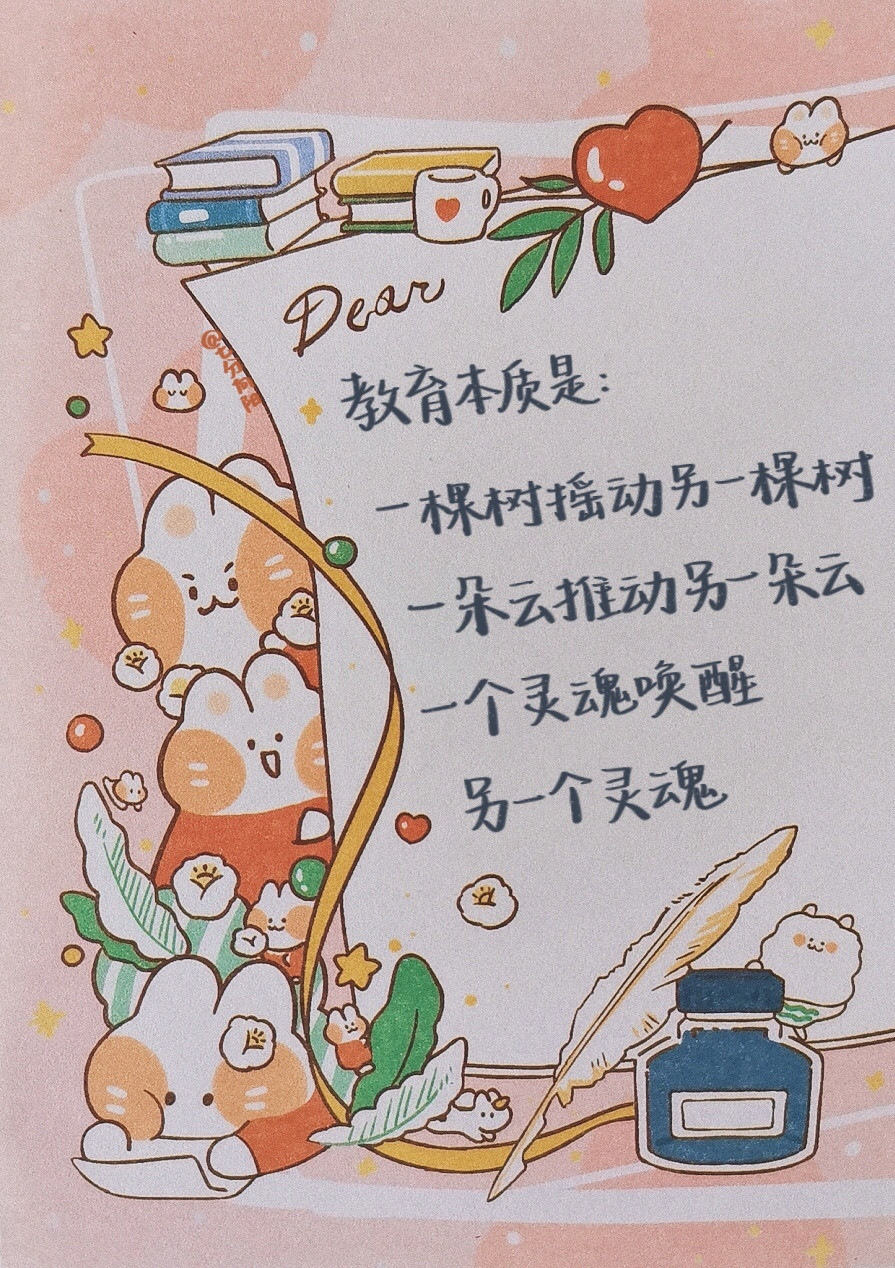 Dear
@七分向阳
教育本质是：
一棵树摇动另一棵树
一朵云推动另一朵云
一个灵魂唤醒
另一个灵魂